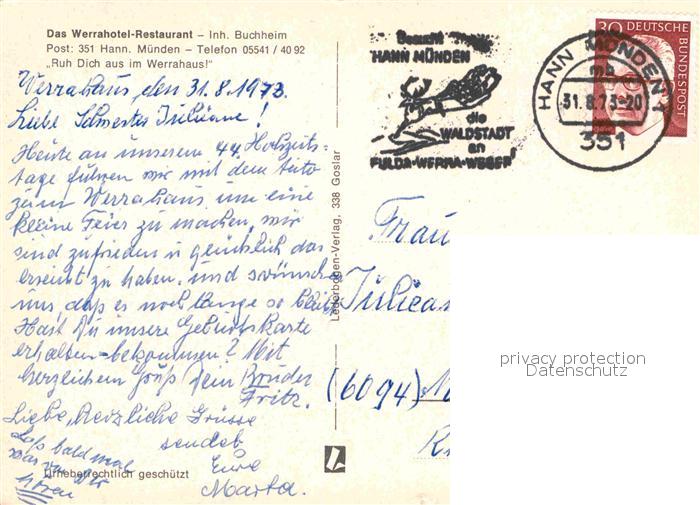 Das Werrahotel-Restaurant – Inh. Buchheim
Post: 351 Hann. Münden – Telefon 05541 / 40 92
„Ruh Dich aus im Werrahaus!"
Werrahaus, den 31.8.1973.
Liebe Schwester Juliane!
Heute an unserem 44. Hochzeits-
tage fuhren wir mit dem Auto
zum Werrahaus um eine
kleine Feier zu machen, wir
sind zufrieden u glücklich das
erreicht zu haben, und wünschen
uns, daß es noch lange so bleibt
Hast Du unsere Geburtskarte
erhalten - bekommen? Mit
herzlichem Gruß Dein Bruder
Fritz.
Liebe, herzliche Grüsse
sendet
Eure
Marta.
Laß bald mal
was von Dir
hören
Urheberrechtlich geschützt
Leiterbogen-Verlag, 338 Goslar
Besucht
HANN MÜNDEN
die
WALDSTADT
an
FULDA·WERRA·WESER
HANN MÜNDEN 1
mb
31.8.73-20
351
30 DEUTSCHE BUNDESPOST
Frau
(6094)
privacy protection
Datenschutz